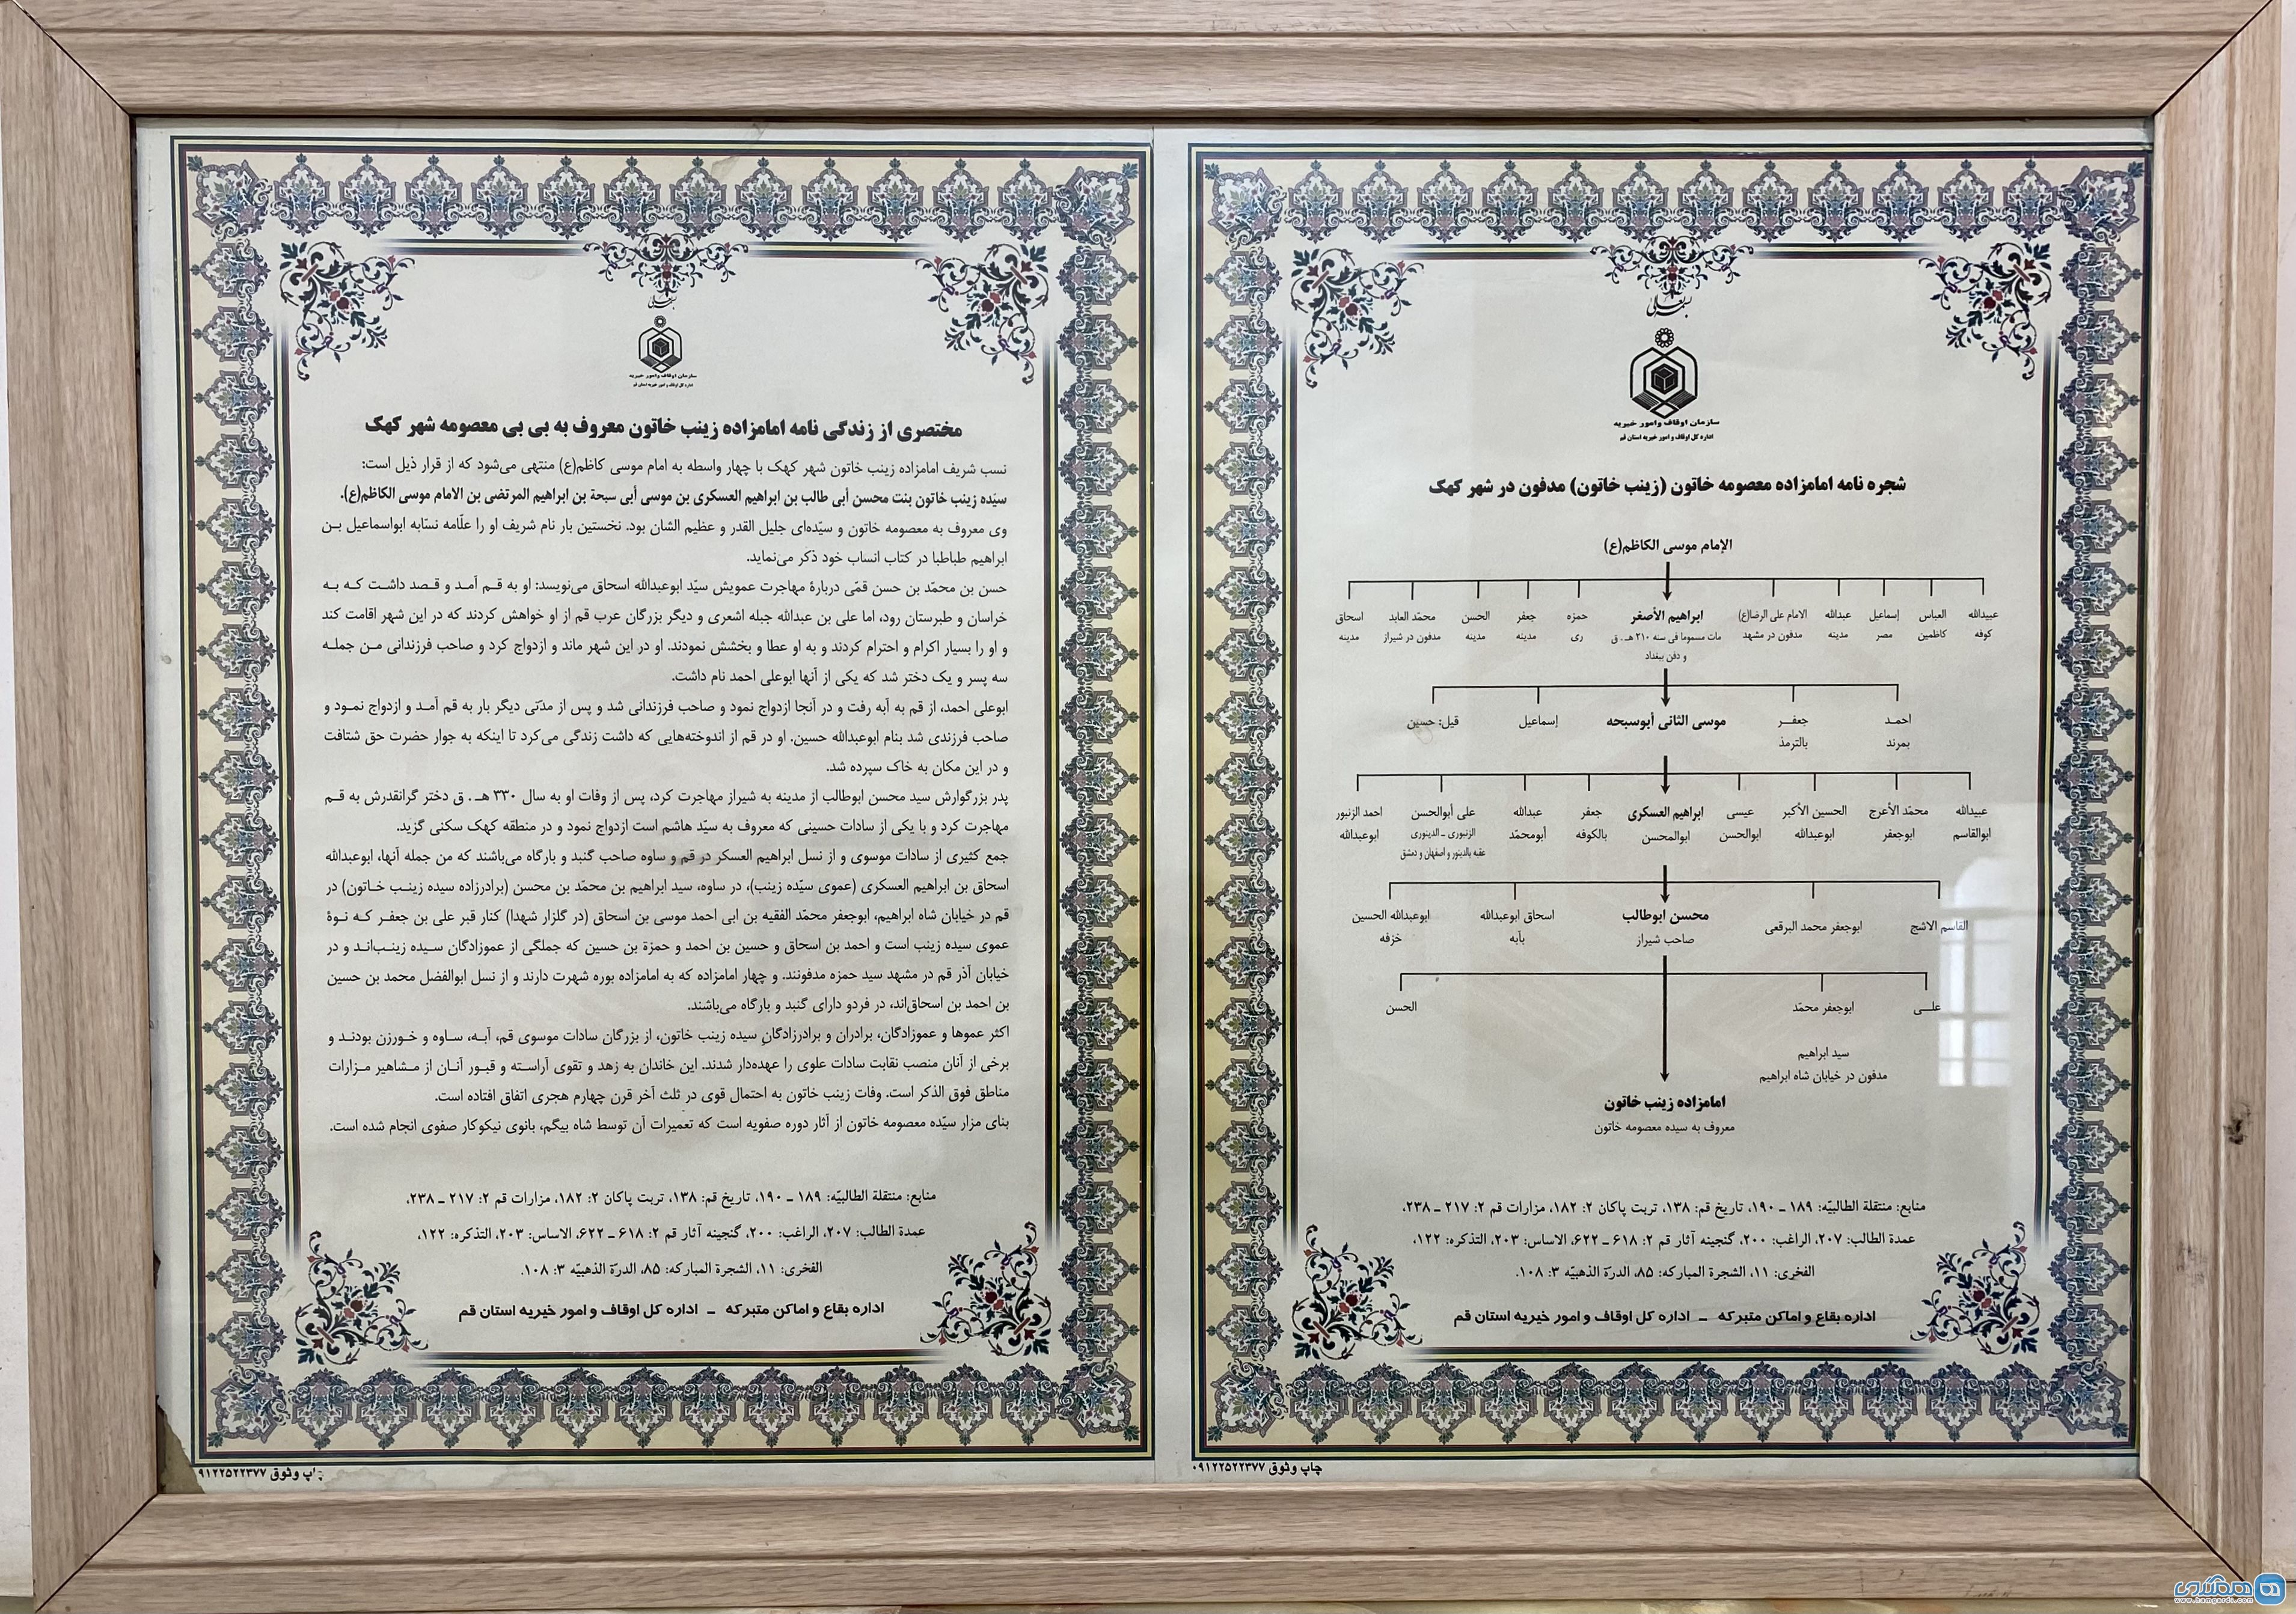 بسمه تعالی
سازمان اوقاف و امور خیریه
اداره کل اوقاف و امور خیریه استان قم
شجره نامه امامزاده معصومه خاتون (زینب خاتون) مدفون در شهر کهک
الإمام موسی الکاظم(ع)
عبیدالله العباس إسماعیل عبدالله الامام علی الرضا(ع) ابراهیم الأصغر حمزه جعفر الحسن محمّد العابد اسحاق
کوفه کاظمین مصر مدینه مدفون در مشهد مات مسموما فی سنه ۲۱۰ هـ . ق ری مدینه مدینه مدفون در شیراز مدینه
و دفن ببغداد
احمـد جعفــر موسی الثانی أبوسبحه إسماعیل قیل: حسین
بمرند بالترمذ
عبیدالله محمّد الأعرج الحسین الأکبر عیسی ابراهیم العسکری جعفر عبدالله علی أبوالحسن احمد الزنبور
ابوالقاسم ابوجعفر ابوعبدالله ابوالحسن ابوالمحسن بالکوفه أبومحمّد الزنبوری ـ الدینوری ابوعبدالله
عقبه بالدینور و اصفهان و دمشق
القاسم الاشج ابوجعفر محمد البرقعی محسن ابوطالب اسحاق ابوعبدالله ابوعبدالله الحسین
صاحب شیراز بآبه خزفه
علــی ابوجعفر محمّد الحسن
سید ابراهیم
مدفون در خیابان شاه ابراهیم
امامزاده زینب خاتون
معروف به سیده معصومه خاتون
منابع: منتقلة الطالبیّه: ۱۸۹ ـ ۱۹۰، تاریخ قم: ۱۳۸، تربت پاکان ۲: ۱۸۲، مزارات قم ۲: ۲۱۷ ـ ۲۳۸،
عمدة الطالب: ۲۰۷، الراغب: ۲۰۰، گنجینه آثار قم ۲: ۶۱۸ ـ ۶۲۲، الاساس: ۲۰۳، التذکره: ۱۲۲،
الفخری: ۱۱، الشجرة المبارکه: ۸۵، الدرّة الذهبیّه ۳: ۱۰۸.
اداره بقاع و اماکن متبرکه ـ اداره کل اوقاف و امور خیریه استان قم
چاپ وثوق ۰۹۱۲۲۵۲۲۳۷۷
بسمه تعالی
سازمان اوقاف و امور خیریه
اداره کل اوقاف و امور خیریه استان قم
مختصری از زندگی نامه امامزاده زینب خاتون معروف به بی بی معصومه شهر کهک
نسب شریف امامزاده زینب خاتون شهر کهک با چهار واسطه به امام موسی کاظم(ع) منتهی می‌شود که از قرار ذیل است:
سیّده زینب خاتون بنت محسن أبی طالب بن ابراهیم العسکری بن موسی أبی سبحة بن ابراهیم المرتضی بن الامام موسی الکاظم(ع).
وی معروف به معصومه خاتون و سیّده‌ای جلیل القدر و عظیم الشان بود. نخستین بار نام شریف او را علّامه نسّابه ابواسماعیل بـن
ابراهیم طباطبا در کتاب انساب خود ذکر می‌نماید.
حسن بن محمّد بن حسن قمّی دربارهٔ مهاجرت عمویش سیّد ابوعبدالله اسحاق می‌نویسد: او به قـم آمـد و قـصد داشـت کـه بـه
خراسان و طبرستان رود، اما علی بن عبدالله جبله اشعری و دیگر بزرگان عرب قم از او خواهش کردند که در این شهر اقامت کند
و او را بسیار اکرام و احترام کردند و به او عطا و بخشش نمودند. او در این شهر ماند و ازدواج کرد و صاحب فرزندانی مـن جملـه
سه پسر و یک دختر شد که یکی از آنها ابوعلی احمد نام داشت.
ابوعلی احمد، از قم به آبه رفت و در آنجا ازدواج نمود و صاحب فرزندانی شد و پس از مدّتی دیگر بار به قم آمـد و ازدواج نمـود و
صاحب فرزندی شد بنام ابوعبدالله حسین. او در قم از اندوخته‌هایی که داشت زندگی می‌کرد تا اینکه به جوار حضرت حق شتافت
و در این مکان به خاک سپرده شد.
پدر بزرگوارش سید محسن ابوطالب از مدینه به شیراز مهاجرت کرد، پس از وفات او به سال ۳۳۰ هـ . ق دختر گرانقدرش به قـم
مهاجرت کرد و با یکی از سادات حسینی که معروف به سیّد هاشم است ازدواج نمود و در منطقه کهک سکنی گزید.
جمع کثیری از سادات موسوی و از نسل ابراهیم العسکر در قم و ساوه صاحب گنبد و بارگاه می‌باشند که من جمله آنها، ابوعبدالله
اسحاق بن ابراهیم العسکری (عموی سیّده زینب)، در ساوه، سید ابراهیم بن محمّد بن محسن (برادرزاده سیده زینـب خـاتون) در
قم در خیابان شاه ابراهیم، ابوجعفر محمّد الفقیه بن ابی احمد موسی بن اسحاق (در گلزار شهدا) کنار قبر علی بن جعفـر کـه نـوهٔ
عموی سیده زینب است و احمد بن اسحاق و حسین بن احمد و حمزة بن حسین که جملگی از عموزادگان سـیده زینـب‌انـد و در
خیابان آذر قم در مشهد سید حمزه مدفونند. و چهار امامزاده که به امامزاده بوره شهرت دارند و از نسل ابوالفضل محمد بن حسین
بن احمد بن اسحاق‌اند، در فردو دارای گنبد و بارگاه می‌باشند.
اکثر عموها و عموزادگان، برادران و برادرزادگان سیده زینب خاتون، از بزرگان سادات موسوی قم، آبـه، سـاوه و خـورزن بودنـد و
برخی از آنان منصب نقابت سادات علوی را عهده‌دار شدند. این خاندان به زهد و تقوی آراسـته و قبـور آنـان از مـشاهیر مـزارات
مناطق فوق الذکر است. وفات زینب خاتون به احتمال قوی در ثلث آخر قرن چهارم هجری اتفاق افتاده است.
بنای مزار سیّده معصومه خاتون از آثار دوره صفویه است که تعمیرات آن توسط شاه بیگم، بانوی نیکوکار صفوی انجام شده است.
منابع: منتقلة الطالبیّه: ۱۸۹ ـ ۱۹۰، تاریخ قم: ۱۳۸، تربت پاکان ۲: ۱۸۲، مزارات قم ۲: ۲۱۷ ـ ۲۳۸،
عمدة الطالب: ۲۰۷، الراغب: ۲۰۰، گنجینه آثار قم ۲: ۶۱۸ ـ ۶۲۲، الاساس: ۲۰۳، التذکره: ۱۲۲،
الفخری: ۱۱، الشجرة المبارکه: ۸۵، الدرّة الذهبیّه ۳: ۱۰۸.
اداره بقاع و اماکن متبرکه ـ اداره کل اوقاف و امور خیریه استان قم
چاپ وثوق ۹۱۲۲۵۲۲۳۷۷
همگردی
www.hamgardi.com